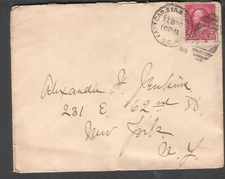 FEB
95
Alexander F. Jenkins
231 E. 62nd St.
New York
N. Y.